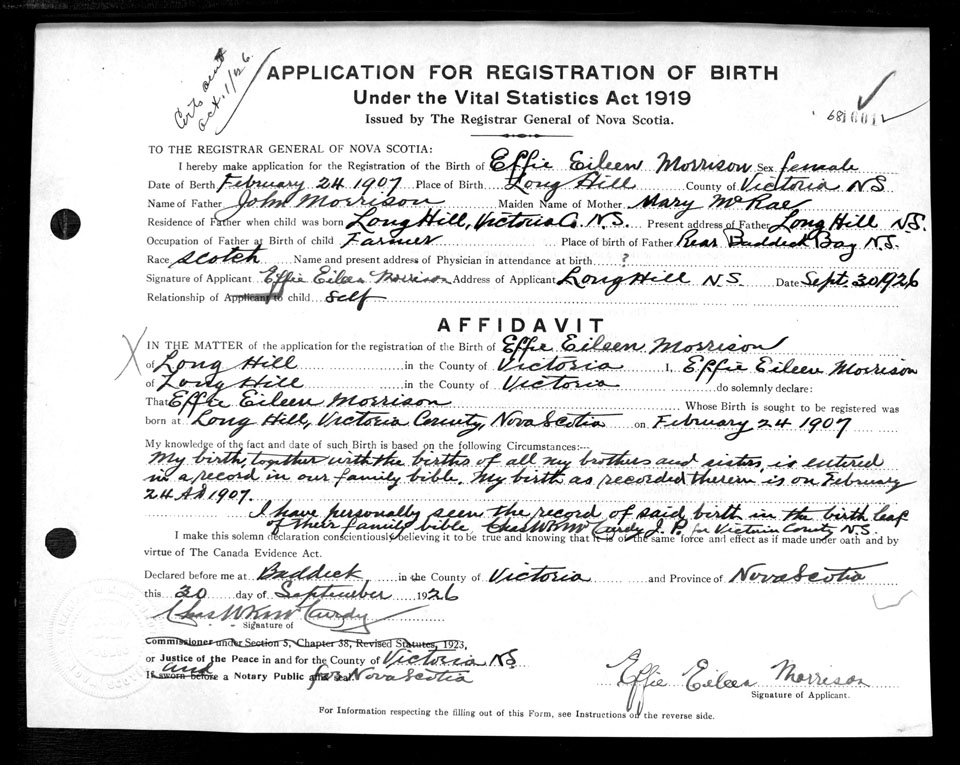 Certs sent
Oct. 1/26.
APPLICATION FOR REGISTRATION OF BIRTH
Under the Vital Statistics Act 1919
Issued by The Registrar General of Nova Scotia.
TO THE REGISTRAR GENERAL OF NOVA SCOTIA:
I hereby make application for the Registration of the Birth of Effie Eileen Morrison Sex female
Date of Berth February 24 1907 Place of Birth Long Hill County of Victoria NS
Name of Father John Morrison Maiden Name of Mother Mary McRae
Residence of Father when child was born Long Hill, Victoria Co. N.S. Present address of Father Long Hill NS.
Occupation of Father at Birth of child Farmer Place of birth of Father Rear Baddeck Bay N.S.
Race Scotch Name and present address of Physician in attendance at birth ?
Signature of Applicant Effie Eileen Morrison Address of Applicant Long Hill N.S. Date Sept. 30 1926
Relationship of Applicant to child self
AFFIDAVIT
IN THE MATTER of the application for the registration of the Birth of Effie Eileen Morrison
of Long Hill in the County of Victoria I, Effie Eileen Morrison
of Long Hill in the County of Victoria do solemnly declare:
That Effie Eileen Morrison Whose Birth is sought to be registered was
born at Long Hill, Victoria County, Nova Scotia on February 24 1907
My knowledge of the fact and date of such Birth is based on the following Circumstances:--
My birth, together with the births of all my brothers and sisters, is entered
in a record in our family bible. My birth as recorded therein is on February
24 AD 1907.
I have personally seen the record of said birth in the birth leaf
of their family bible Chas W K McCurdy J.P. for Victoria County N.S.
I make this solemn declaration conscientiously believing it to be true and knowing that it is of the same force and effect as if made under oath and by
virtue of The Canada Evidence Act.
Declared before me at Baddeck, in the County of Victoria and Province of Nova Scotia
this 30 day of September 1926
Chas W K McCurdy
Signature of
Commissioner under Section 5, Chapter 38, Revised Statutes, 1923,
or Justice of the Peace in and for the County of Victoria N.S.
and
If sworn before a Notary Public affix seal. for Nova Scotia
Effie Eileen Morrison
Signature of Applicant.
For Information respecting the filling out of this Form, see Instructions on the reverse side.